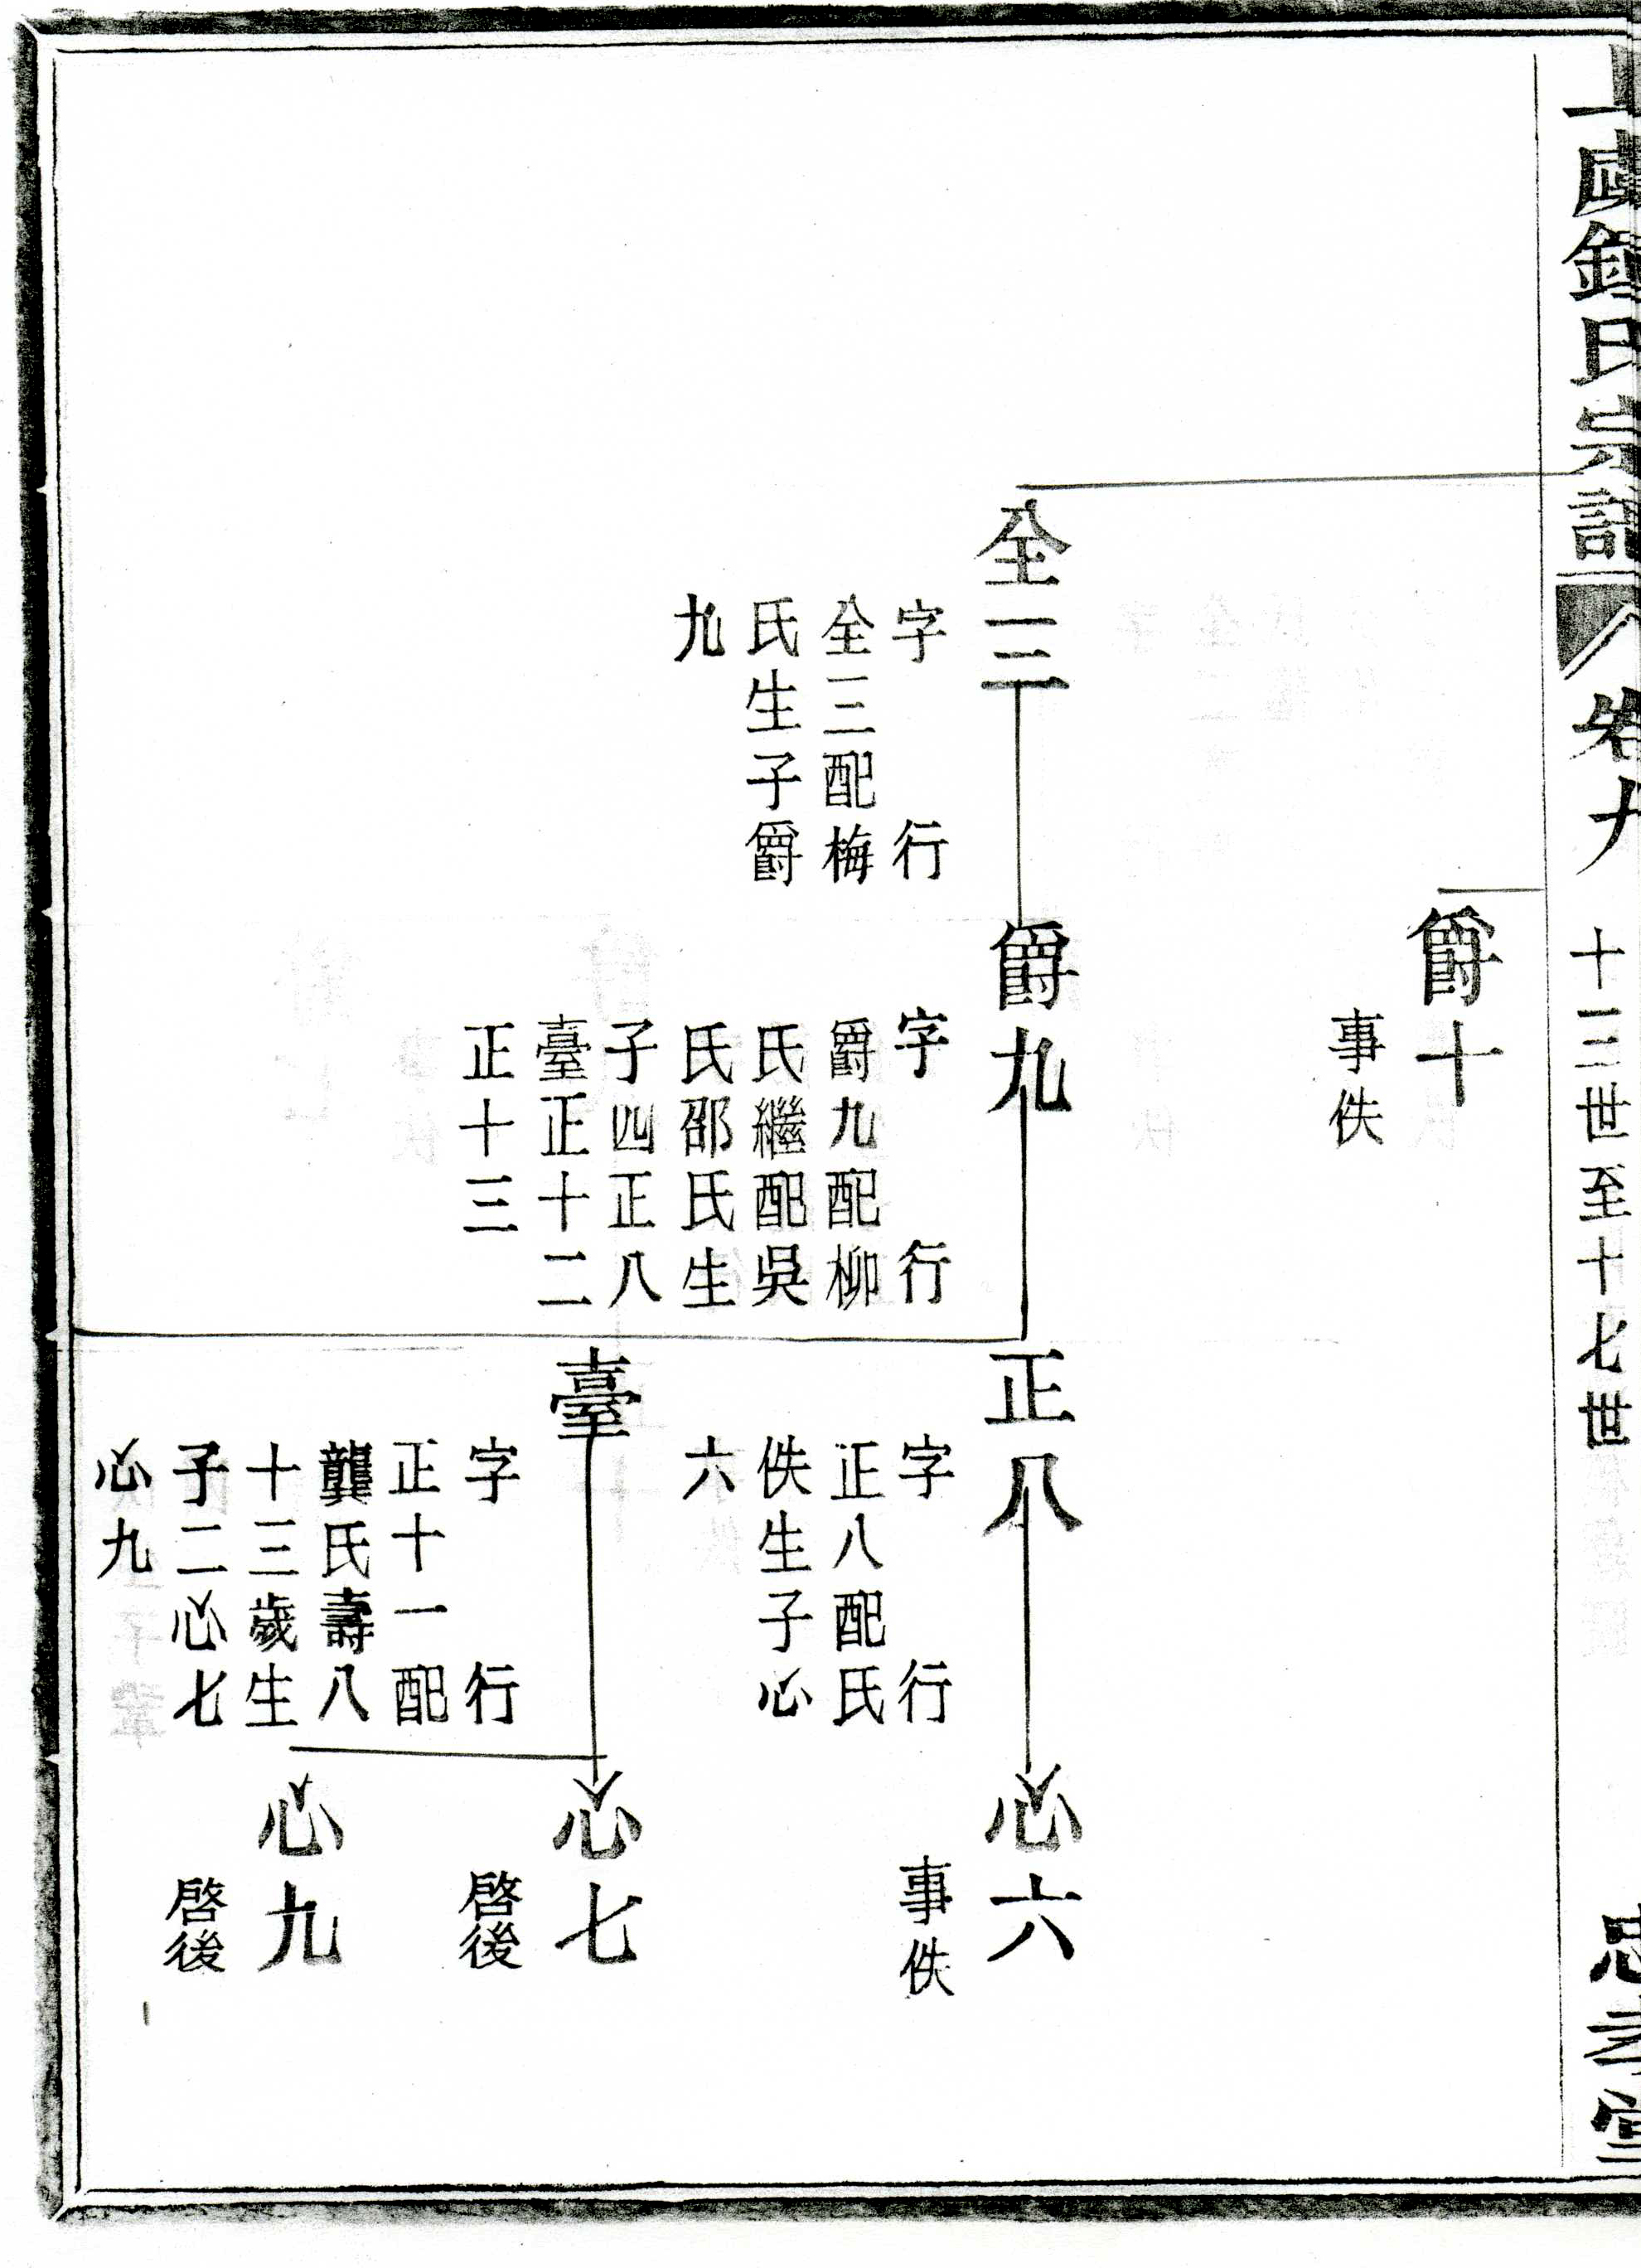 上虞 氏宗譜
卷
十三世至十七世
忠孝堂
爵十
事佚
全三
字行
全三配梅
氏生子爵
九
爵九
字行
爵九配柳
氏繼配吳
氏邵氏生
子四正八
臺正十二
正十三
正八
字行
正八配氏
佚生子心
六
心六
事佚
臺
字行
正十一配
龔氏壽八
十三歲生
子二心七
心九
心七
啓後
心九
啓後